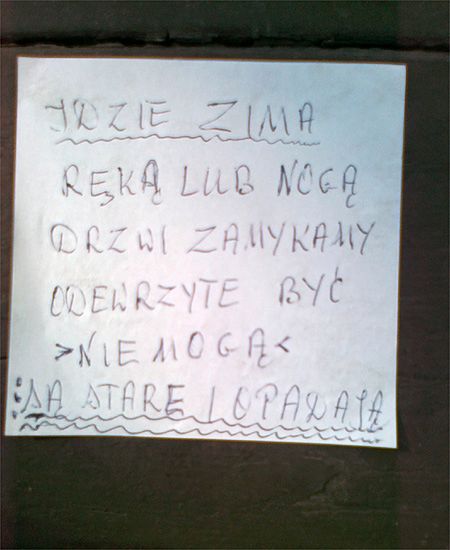 IDZIE ZIMA
RĘKĄ LUB NOGĄ
DRZWI ZAMYKAMY
ODEWRZYTE BYĆ
>NIE MOGĄ<
:SĄ STARE I OPADAJĄ